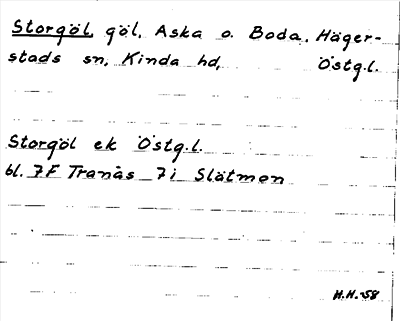 Storgöl, göl, Aska o. Boda, Häger-
stads sn, Kinda hd, Östg.l.
Storgöl ek Östg.l.
bl. 7F Tranås 7i Slätmon
H.H. -58